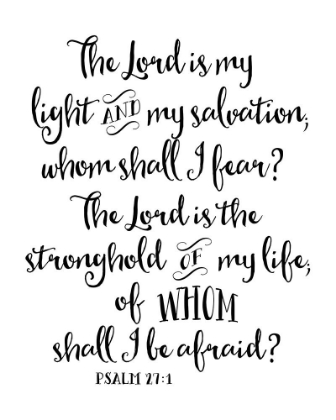 The Lord is my
light AND my salvation;
whom shall I fear?
The Lord is the
stronghold OF my life;
of WHOM
shall I be afraid?
PSALM 27:1